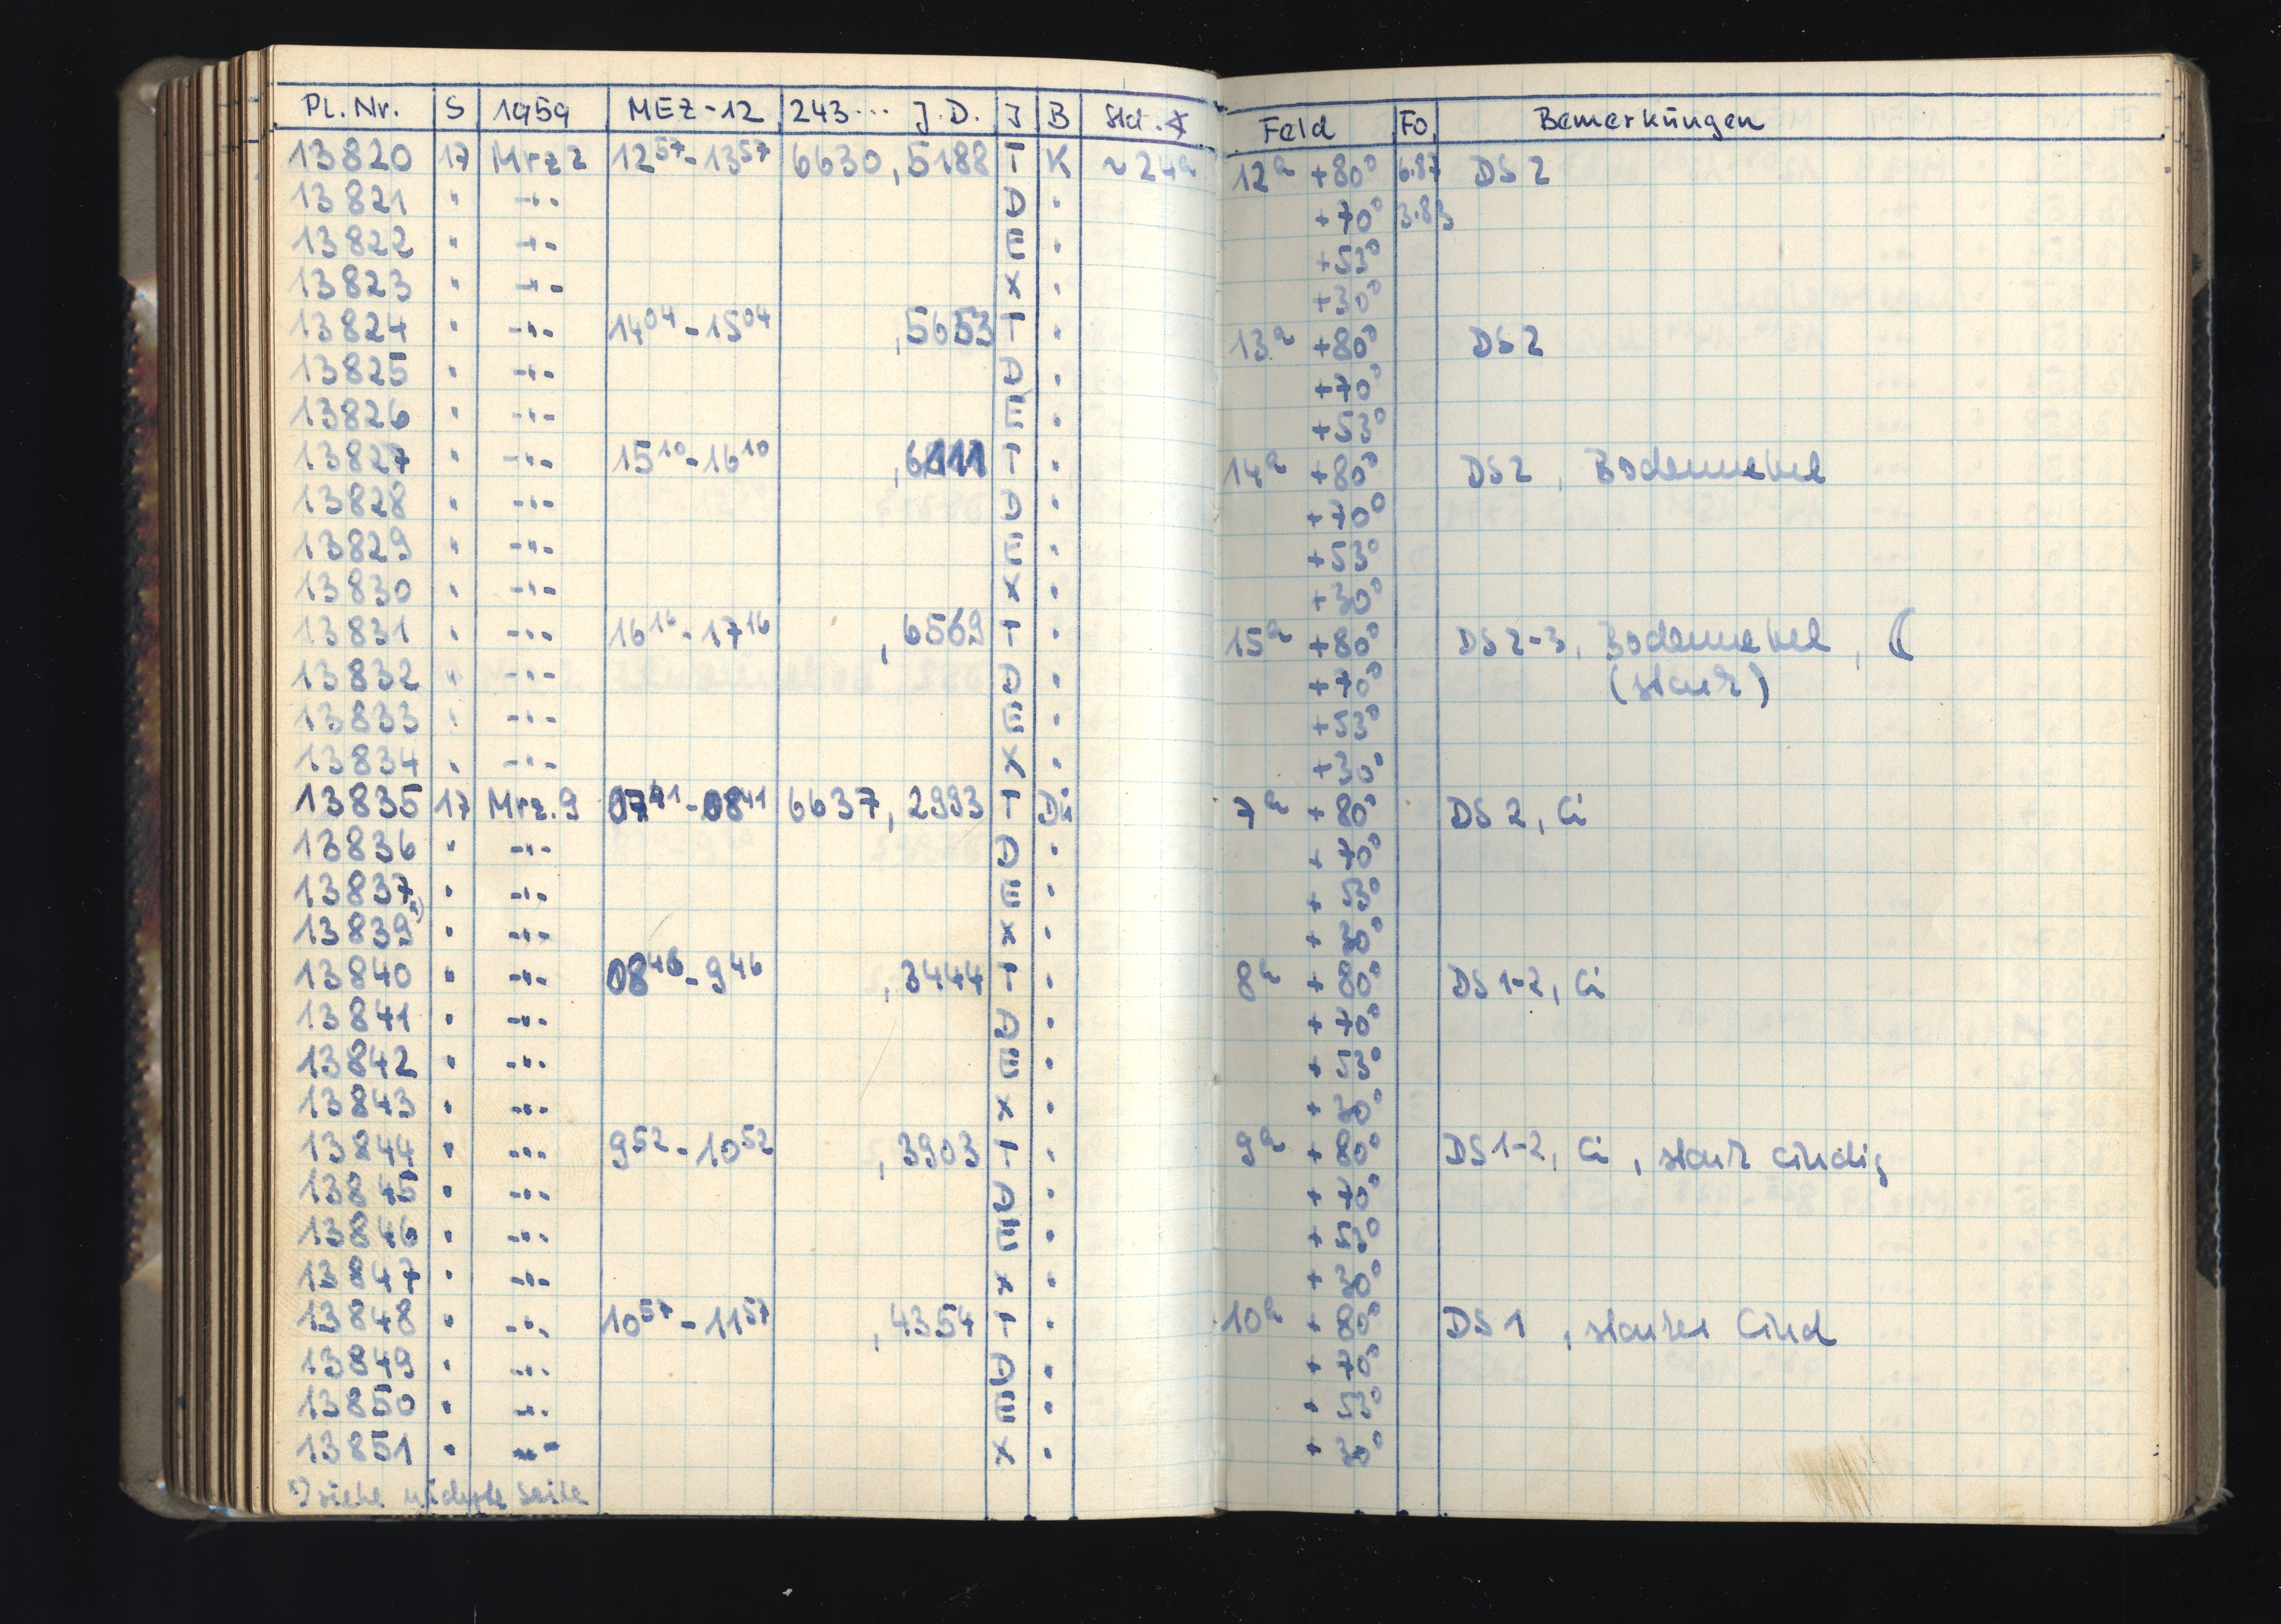 Pl. Nr. S 1959 MEZ-12 243... J.D. J B Std.∢ Feld Fo. Bemerkungen
13820 17 Mrz 2 12⁵⁷-13⁵⁷ 6630,5188 T K ~24ʰ 12ʰ +80° 6.87 DS 2
13821 " -"- D . +70° 3.83
13822 " -"- E . +53°
13823 " -"- X . +30°
13824 " -"- 14⁰⁴-15⁰⁴ ,5653 T . 13ʰ +80° DS 2
13825 " -"- D . +70°
13826 " -"- E . +53°
13827 " -"- 15¹⁰-16¹⁰ ,6111 T . 14ʰ +80° DS 2, Bodennebel
13828 " -"- D . +70°
13829 " -"- E . +53°
13830 " -"- X . +30°
13831 " -"- 16¹⁶-17¹⁶ ,6569 T . 15ʰ +80° DS 2-3, Bodennebel, ☾
13832 " -"- D . +70° (stark)
13833 " -"- E . +53°
13834 " -"- X . +30°
13835 17 Mrz. 9 07⁴¹-08⁴¹ 6637,2993 T Di 7ʰ +80° DS 2, Ci
13836 " -"- D . +70°
13837 " -"- E . +53°
13839*) " -"- X . +30°
13840 " -"- 08⁴⁶-9⁴⁶ ,3444 T . 8ʰ +80° DS 1-2, Ci
13841 " -"- D . +70°
13842 " -"- E . +53°
13843 " -"- X . +30°
13844 " -"- 9⁵²-10⁵² ,3903 T . 9ʰ +80° DS 1-2, Ci, stark windig
13845 " -"- D . +70°
13846 " -"- E . +53°
13847 " -"- X . +30°
13848 " -"- 10⁵⁷-11⁵⁷ ,4354 T . 10ʰ +80° DS 1, starker Wind
13849 " -"- D . +70°
13850 " -"- E . +53°
13851 " -"- X . +30°
*) siehe nächste Seite